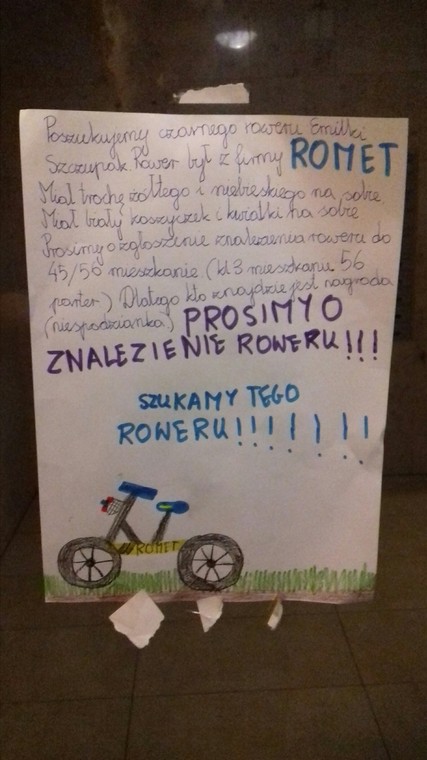 Poszukujemy czarnego roweru Emilki
Szczupak. Rower był z firmy ROMET
Miał trochę żółtego i niebieskiego na sobie
Miał biały koszyczek i kwiatki na sobie
Prosimy o zgłoszenie znalezenia roweru do
45/56 mieszkanie (kl 3 mieszkanie 56
parter) Dlatego kto znajdzie jest nagroda
(niespodzianka) PROSIMY O
ZNALEZIENIE ROWERU!!!
SZUKAMY TEGO
ROWERU!!!!!!!!
ROMET